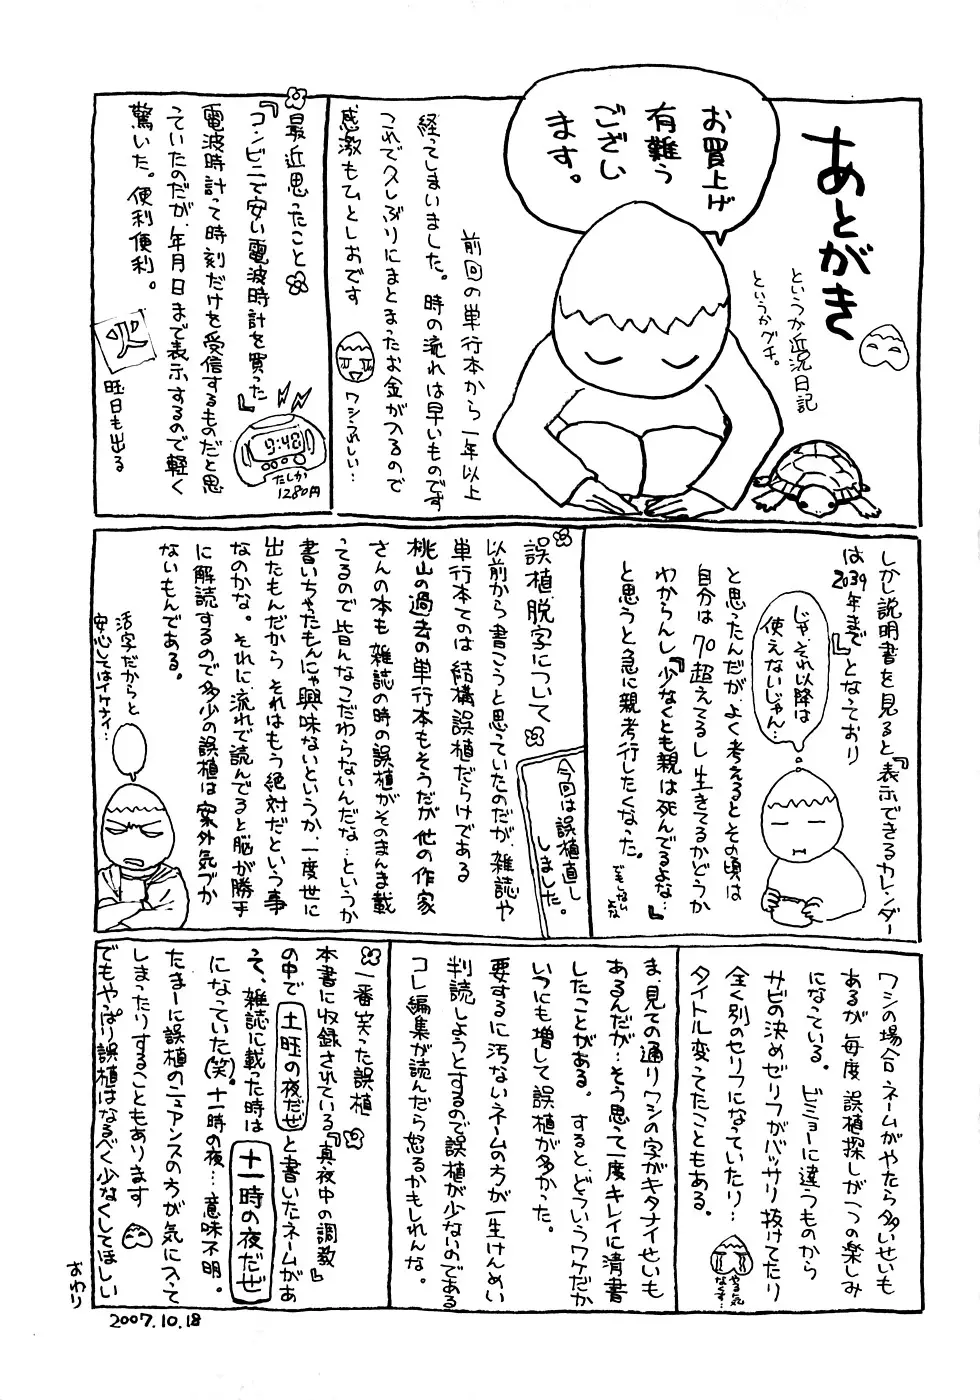 あとがき
というか近況日記
というかグチ。
お買上げ
有難う
ござい
ます。
前回の単行本から一年以上
経ってしまいました。時の流れは早いものです
これで久しぶりにまとまったお金が入るので
感激もひとしおです
ワシうれしい…
最近思ったこと
『コンビニで安い電波時計を買った』
9:48
たしか
1280円
電波時計って時刻だけを受信するものだと思
っていたのだが、年月日まで表示するので軽く
驚いた。便利便利。
火
曜日も出る
しかし説明書を見ると『表示できるカレンダー
は2039年まで』となっており
じゃ、それ以降は
使えないじゃん…
と思ったんだが、よく考えるとその頃は
自分は70超えてるし生きてるかどうか
わからんし『少なくとも親は死んでるよな…』
と思うと急に親孝行したくなった。
誤植脱字について
今回は誤植直し
しました。
以前から書こうと思っていたのだが、雑誌や
単行本てのは結構誤植だらけである
桃山の過去の単行本もそうだが他の作家
さんの本も雑誌の時の誤植がそのまんま載
ってるので皆んなこだわらないんだな…というか
書いちゃたもんにゃ興味ないというか、一度世に
出たもんだからそれはもう絶対だという事
なのかな。それに流れで読んでると脳が勝手
に解読するので多少の誤植は案外気づか
ないもんである。
活字だからと
安心してはイケナイ…
ワシの場合ネームがやたら多いせいも
あるが毎度誤植探しが一つの楽しみ
になっている。ビミョーに違うものから
サビの決めゼリフがバッサリ抜けてたり
全く別のセリフになっていたり…
タイトル変ってたこともある。
やる気
なくす…
ま、見ての通りワシの字がキタナイせいも
あるんだが…そう思って一度キレイに清書
したことがある。すると、どういうワケだか
いつにも増して誤植が多かった。
要するに汚ないネームの方が一生けんめい
判読しようとするので誤植が少ないのである
コレ編集が読んだら怒るかもしれんな。
一番笑った誤植
本書に収録されている『真夜中の調教』
の中で土曜の夜だぜと書いたネームがあ
って、雑誌に載った時は十一時の夜だぜ
になっていた(笑)。十一時の夜…意味不明。
たまーに誤植のニュアンスの方が気に入って
しまったりすることもあります
でもやっぱり誤植はなるべく少なくしてほしい
おわり
2007.10.18